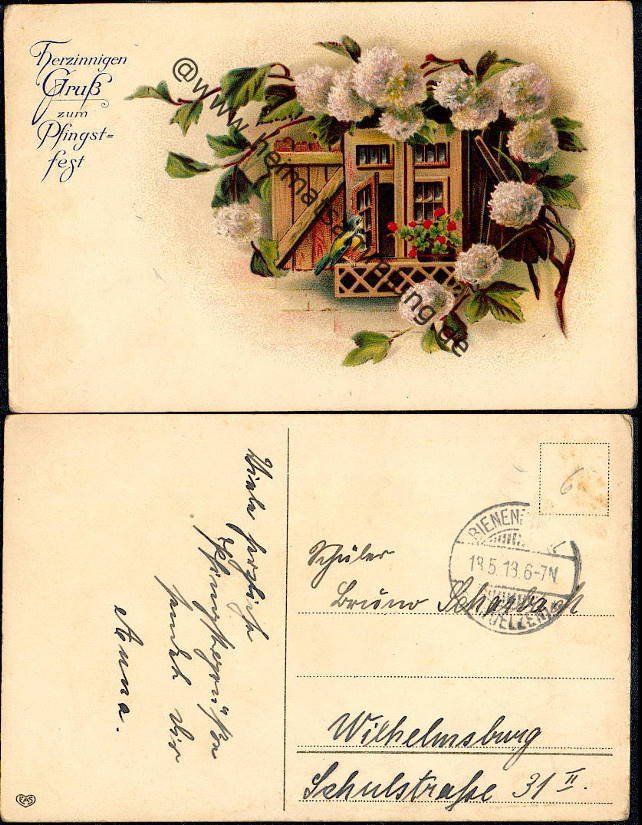 Herzinnigen
Gruß
zum
Pfingst=
fest
@www.heimatsammlung.de
Viele herzliche
Pfingstgrüße
sendet dir
Anna.
BIENEN
18.5.18.6-7N
(UELZEN)
6
Schüler
Bruno
Wilhelmsburg
Schulstraße 31 II.
EAS